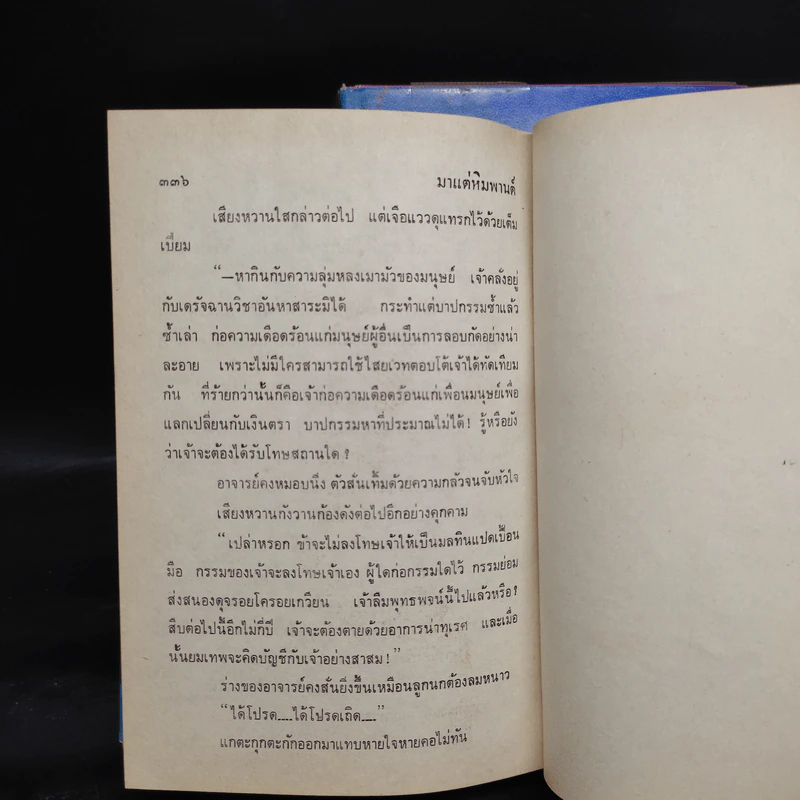 ๓๓๖ มาแต่หิมพานต์
เสียงหวานใสกล่าวต่อไป แต่เจือแววดุแทรกไว้ด้วยเต็ม
เปี่ยม
“—หากินกับความลุ่มหลงเมามัวของมนุษย์ เจ้าคลั่งอยู่
กับเดรัจฉานวิชาอันหาสาระมิได้ กระทำแต่บาปกรรมซ้ำแล้ว
ซ้ำเล่า ก่อความเดือดร้อนแก่มนุษย์ผู้อื่นเป็นการลอบกัดอย่างน่า
ละอาย เพราะไม่มีใครสามารถใช้ไสยเวทตอบโต้เจ้าได้ทัดเทียม
กัน ที่ร้ายกว่านั้นก็คือเจ้าก่อความเดือดร้อนแก่เพื่อนมนุษย์เพื่อ
แลกเปลี่ยนกับเงินตรา บาปกรรมหาที่ประมาณไม่ได้! รู้หรือยัง
ว่าเจ้าจะต้องได้รับโทษสถานใด?
อาจารย์คงหมอบนิ่ง ตัวสั่นเทิ้มด้วยความกลัวจนจับหัวใจ
เสียงหวานกังวานก้องดังต่อไปอีกอย่างคุกคาม
“เปล่าหรอก ข้าจะไม่ลงโทษเจ้าให้เป็นมลทินแปดเปื้อน
มือ กรรมของเจ้าจะลงโทษเจ้าเอง ผู้ใดก่อกรรมใดไว้ กรรมย่อม
ส่งสนองดุจรอยโครอยเกวียน เจ้าลืมพุทธพจน์นี้ไปแล้วหรือ?
สืบต่อไปนี้อีกไม่กี่ปี เจ้าจะต้องตายด้วยอาการน่าทุเรศ และเมื่อ
นั้นยมเทพจะคิดบัญชีกับเจ้าอย่างสาสม!”
ร่างของอาจารย์คงสั่นยิ่งขึ้นเหมือนลูกนกต้องลมหนาว
“ได้โปรด....ได้โปรดเถิด....”
แกตะกุกตะกักออกมาแทบหายใจหายคอไม่ทัน